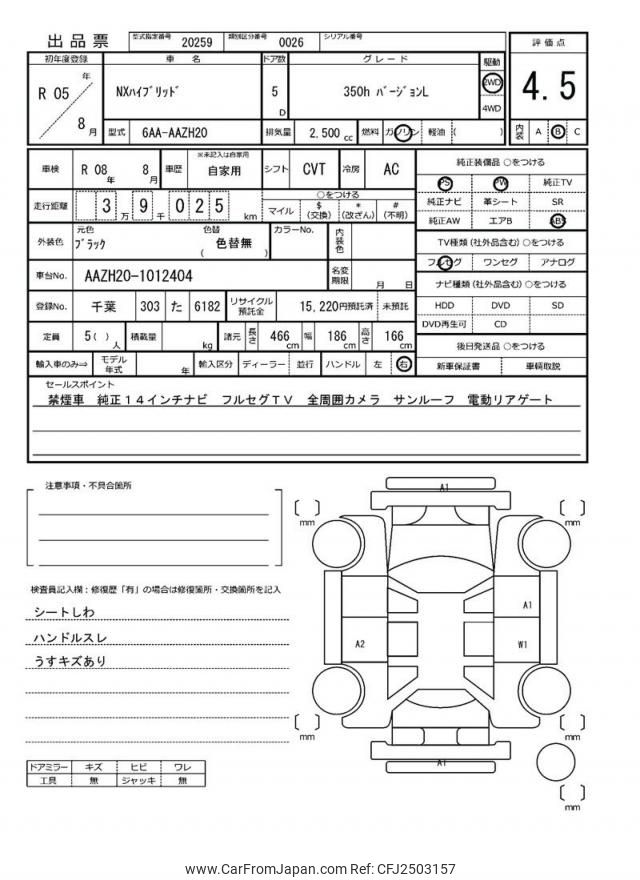 出品票 型式指定番号 20259 類別区分番号 0026 シリアル番号
初年度登録 車名 ドア数 グレード 駆動 評価点
R 05 年 8 月 NXハイブリッド 5 D 350h バージョンL 2WD 4WD 4.5
型式 6AA-AAZH20 排気量 2,500 cc 燃料 ガソリン 軽油 ( ) 内装 A B C
車検 R 08 年 8 月 車歴 ※未記入は自家用 自家用 シフト CVT 冷房 AC
純正装備品 ○をつける
PS PW 純正TV
純正ナビ 革シート SR
純正AW エアB ABS
走行距離 3 万 9 千 0 2 5 km ○をつける
マイル $ (交換) * (改ざん) # (不明)
外装色 元色 ブラック 色替 色替無 ( ) カラーNo. 内装色
TV種類 (社外品含む) ○をつける
フルセグ ワンセグ アナログ
車台No. AAZH20-1012404 名変期限 月 日
ナビ種類 (社外品含む) ○をつける
HDD DVD SD
DVD再生可 CD
登録No. 千葉 303 た 6182 リサイクル預託金 15,220円預託済 未預託
定員 5 ( ) 人 積載量 kg 諸元 長さ 466 cm 幅 186 cm 高さ 166 cm
後日発送品 ○をつける
新車保証書 車輌取説
輸入車のみ⇒ モデル年式 年 輸入区分 ディーラー 並行 ハンドル 左 右
セールスポイント
禁煙車 純正14インチナビ フルセグTV 全周囲カメラ サンルーフ 電動リアゲート
注意事項・不具合箇所
検査員記入欄：修復歴「有」の場合は修復箇所・交換箇所を記入
シートしわ
ハンドルスレ
うすキズあり
ドアミラー キズ ヒビ ワレ
工具 無 ジャッキ 無
A1
[ ] mm
[ ] mm
A1
A2
W1
[ ] mm
[ ] mm
A1
[ ] mm
www.CarFromJapan.com Ref: CFJ2503157